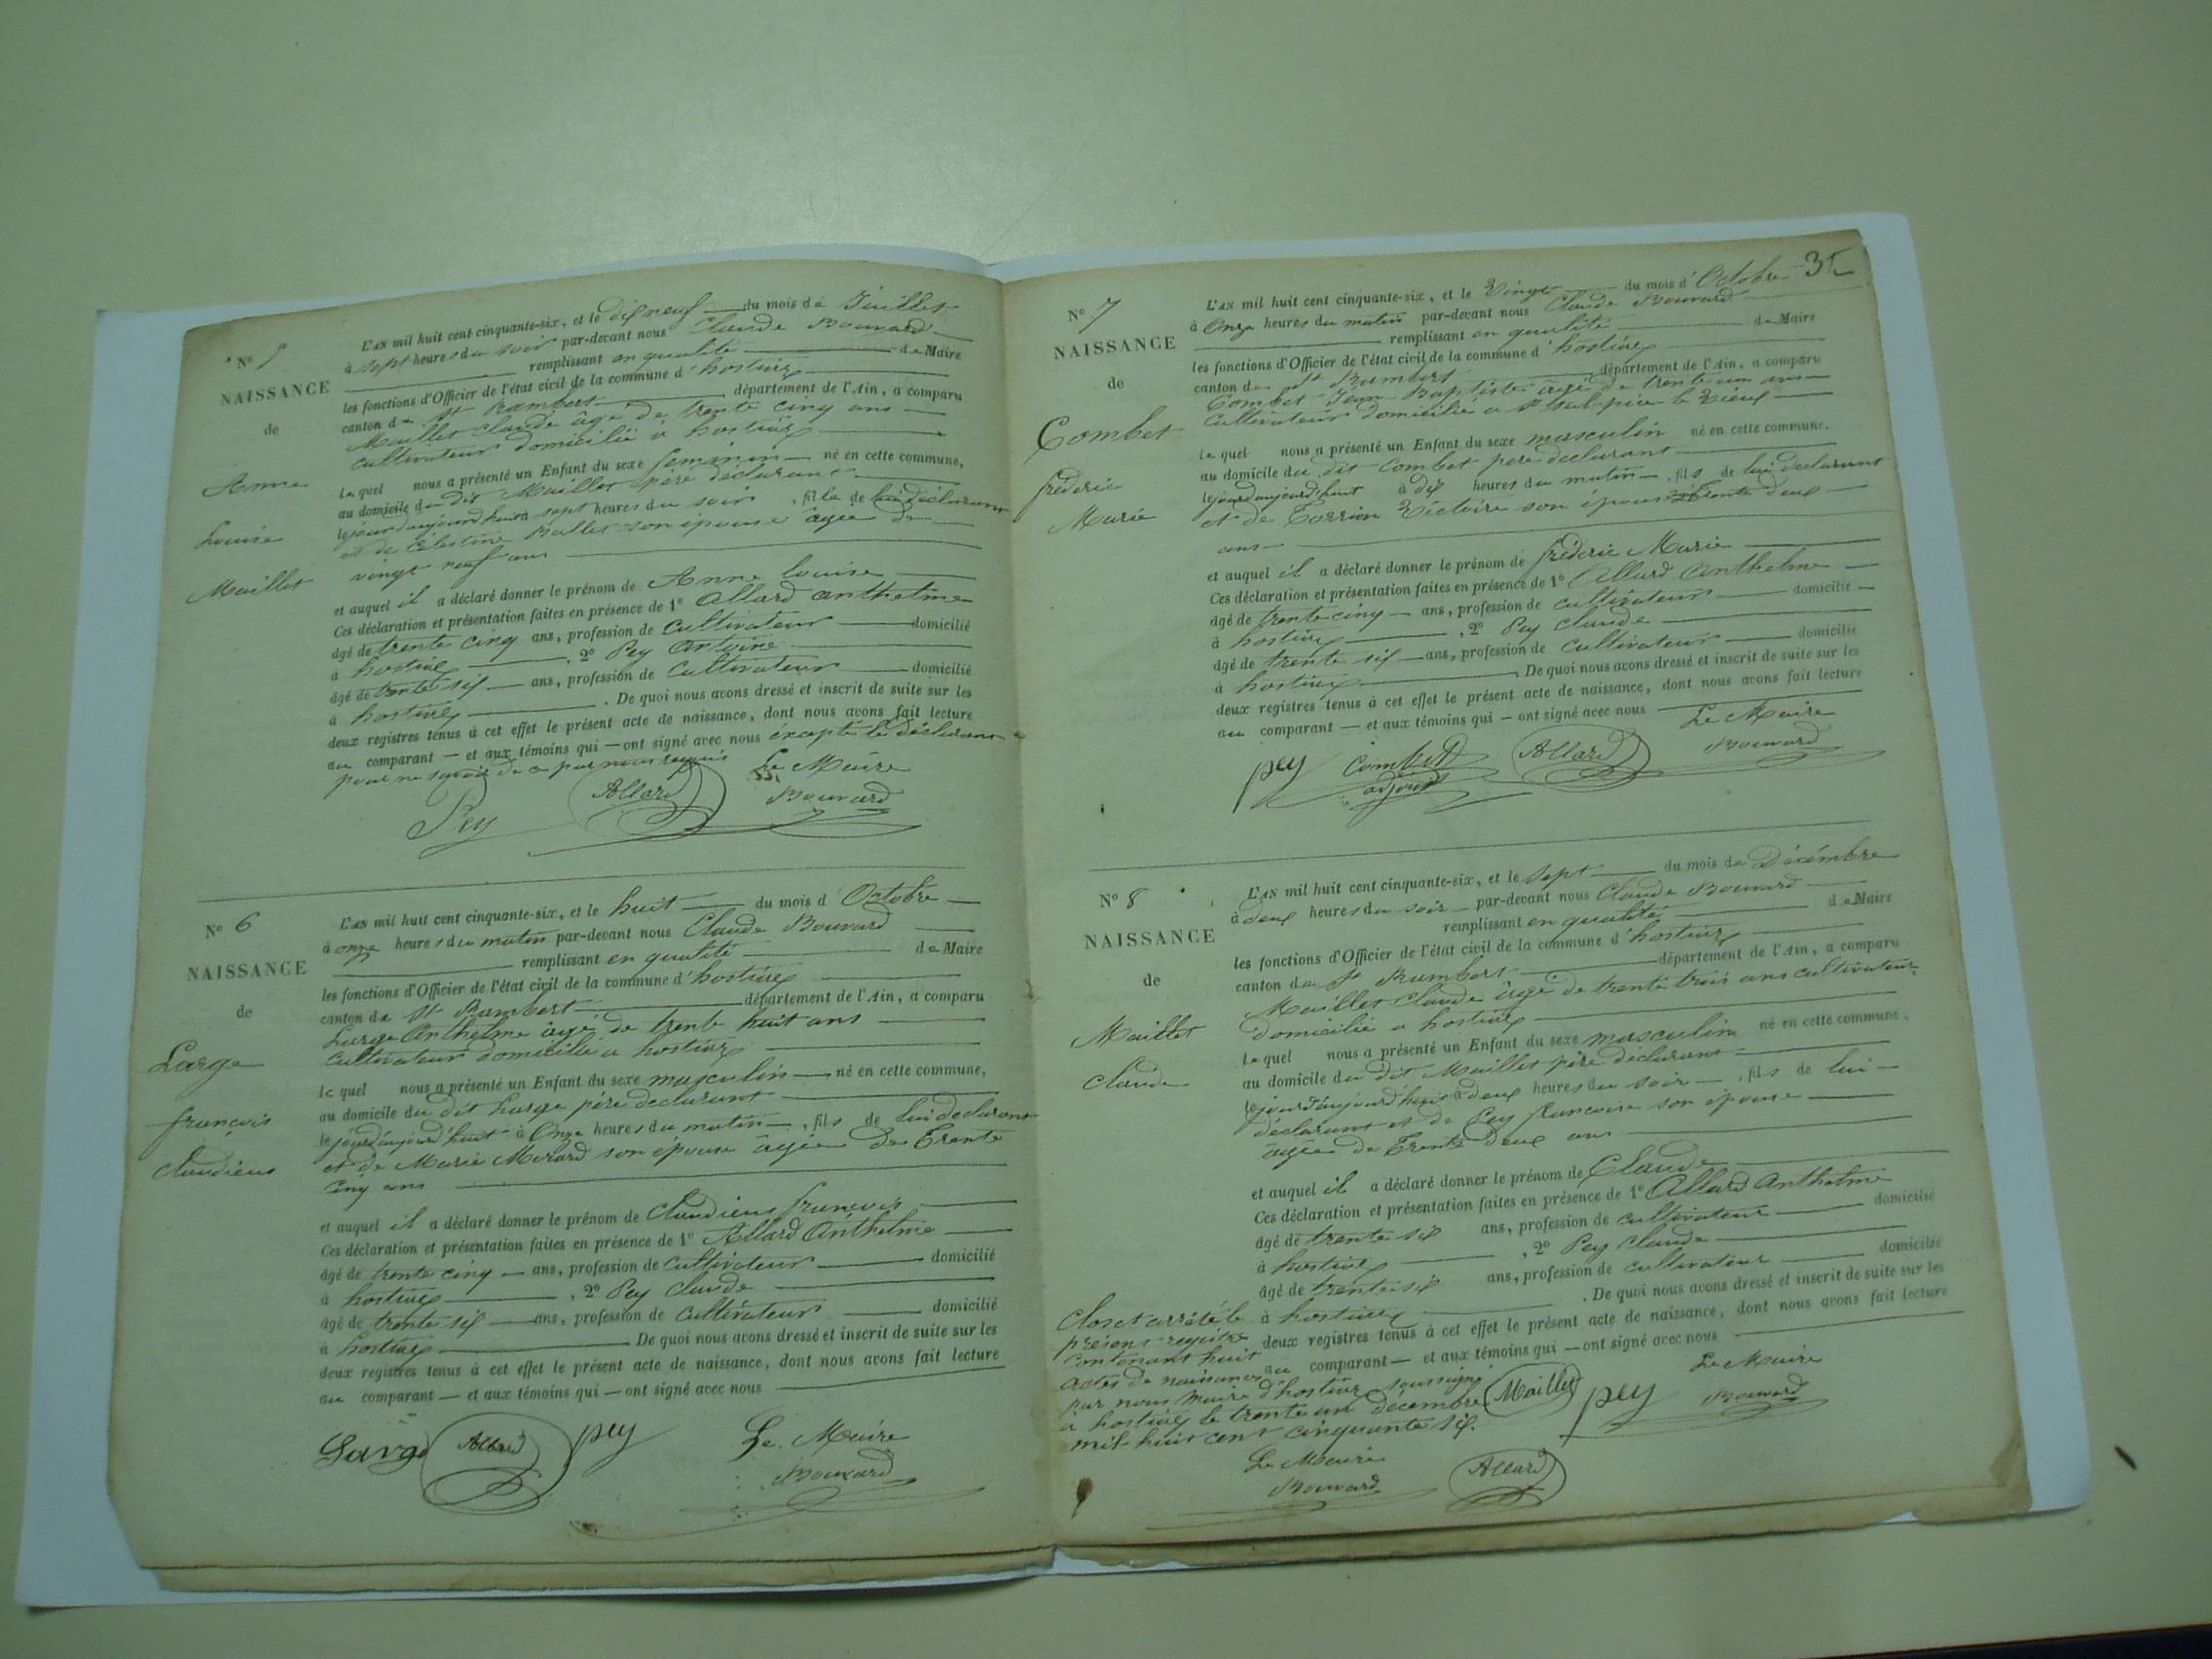 N° 5
NAISSANCE
de
Anne
Louise
Maillet
L'AN mil huit cent cinquante-six, et le dix neuf du mois de Juillet
à sept heures du soir par-devant nous Claude Bouvard
remplissant en qualité de Maire
les fonctions d'Officier de l'état civil de la commune d'hostiaz
canton de St Rambert département de l'Ain, a comparu
Maillet Claude âgé de trente cinq ans
cultivateur domicilié à hostiaz
lequel nous a présenté un Enfant du sexe feminin né en cette commune,
au domicile du dit Maillet père déclarant
le jourd'aujourd'hui à sept heures du soir, fille de lui déclarant
et de Célestine Ballet son épouse âgée de
vingt neuf ans
et auquel il a déclaré donner le prénom de Anne Louise
Ces déclaration et présentation faites en présence de 1° Allard Anthelme
âgé de trente cinq ans, profession de cultivateur domicilié
à hostiaz, 2° Pey Antoine
âgé de trente six ans, profession de cultivateur domicilié
à hostiaz. De quoi nous avons dressé et inscrit de suite sur les
deux registres tenus à cet effet le présent acte de naissance, dont nous avons fait lecture
au comparant — et aux témoins qui — ont signé avec nous excepté le déclarant
pour ne savoir de ce par nous requis
Le Maire
Pey Allard Bouvard
N° 6
NAISSANCE
de
Large
françois
Claudius
L'AN mil huit cent cinquante-six, et le huit du mois d'Octobre
à onze heures du matin par-devant nous Claude Bouvard
remplissant en qualité de Maire
les fonctions d'Officier de l'état civil de la commune d'hostiaz
canton de St Rambert département de l'Ain, a comparu
Large Anthelme âgé de trente huit ans
cultivateur domicilié a hostiaz
lequel nous a présenté un Enfant du sexe masculin né en cette commune,
au domicile du dit Large père declarant
le jourd'aujourd'huit à Onze heures du matin, fils de lui declarant
et de Marie Morard son épouse âgée de Trente
cinq ans
et auquel il a déclaré donner le prénom de Claudius françois
Ces déclaration et présentation faites en présence de 1° Allard Anthelme
âgé de trente cinq ans, profession de cultivateur domicilié
à hostiaz, 2° Pey Claude
âgé de trente six ans, profession de cultivateur domicilié
à hostiaz De quoi nous avons dressé et inscrit de suite sur les
deux registres tenus à cet effet le présent acte de naissance, dont nous avons fait lecture
au comparant — et aux témoins qui — ont signé avec nous
Large Allard pey Le Maire
Bouvard
35
N° 7
NAISSANCE
de
Combet
fréderic
Marie
L'AN mil huit cent cinquante-six, et le Vingt du mois d'Octobre
à Onze heures du matin par-devant nous Claude Bouvard
remplissant en qualité de Maire
les fonctions d'Officier de l'état civil de la commune d'hostiaz
canton de St Rambert département de l'Ain, a comparu
Combet Jean Baptiste âgé de trente un ans
cultivateur domicilié a St Sulpice le Vieux
lequel nous a présenté un Enfant du sexe masculin né en cette commune.
au domicile du dit Combet père declarant
le jourd'aujourd'huit à dix heures du matin, fils de lui declarant
et de Victoire son épouse Trente deux
ans
et auquel il a déclaré donner le prénom de fréderic Marie
Ces déclaration et présentation faites en présence de 1° Allard Anthelme
âgé de trente cinq ans, profession de cultivateur domicilié
à hostiaz, 2° Pey Claude
âgé de trente six ans, profession de cultivateur domicilié
à hostiaz. De quoi nous avons dressé et inscrit de suite sur les
deux registres tenus à cet effet le présent acte de naissance, dont nous avons fait lecture
au comparant — et aux témoins qui — ont signé avec nous
Le Maire
pey Combet Allard Bouvard
adjoint
N° 8
NAISSANCE
de
Maillet
Claude
L'AN mil huit cent cinquante-six, et le sept du mois de Décembre
à deux heures du soir par-devant nous Claude Bouvard
remplissant en qualité de Maire
les fonctions d'Officier de l'état civil de la commune d'hostiaz
canton de St Rambert département de l'Ain, a comparu
Maillet Claude âgé de trente trois ans cultivateur
domicilié a hostiaz
lequel nous a présenté un Enfant du sexe masculin né en cette commune.
au domicile du dit Maillet père déclarant
le jourd'aujourd'huit à deux heures du soir, fils de lui
déclarant et de Pey françoise son épouse
âgée de Trente deux ans
et auquel il a déclaré donner le prénom de Claude
Ces déclaration et présentation faites en présence de 1° Allard Anthelme
âgé de trente six ans, profession de cultivateur domicilié
à hostiaz, 2° Pey Claude
âgé de trente six ans, profession de cultivateur domicilié
à hostiaz. De quoi nous avons dressé et inscrit de suite sur les
deux registres tenus à cet effet le présent acte de naissance, dont nous avons fait lecture
au comparant — et aux témoins qui — ont signé avec nous
Le Maire
Maillet pey Bouvard
Clos et arrêté le
présent registre
contenant huit
actes de naissances
par nous maire d'hostiaz soussigné
à hostiaz le trente un décembre
mil huit cent cinquante six.
Le Maire
Bouvard Allard